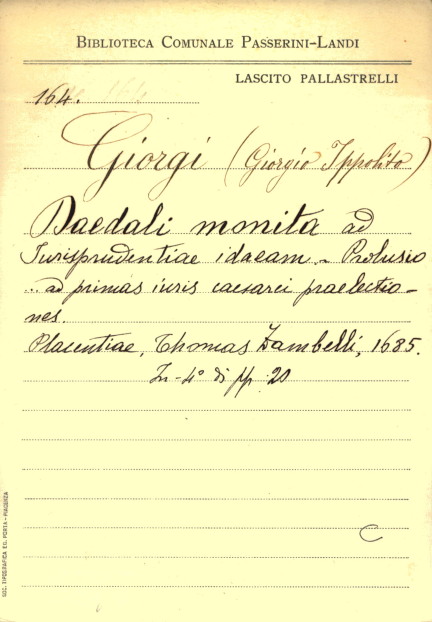 BIBLIOTECA COMUNALE PASSERINI-LANDI
LASCITO PALLASTRELLI
164.
Giorgi (Giorgio Ippolito)
Daedali monita ad
Jurisprudentiae idaeam - Prolusio
... ad primas iuris caesarei praelectio-
nes.
Placentiae, Thomas Zambelli, 1685.
In-4° di pp. 20
C
SOC. TIPOGRAFICA ED. PORTA-PIACENZA